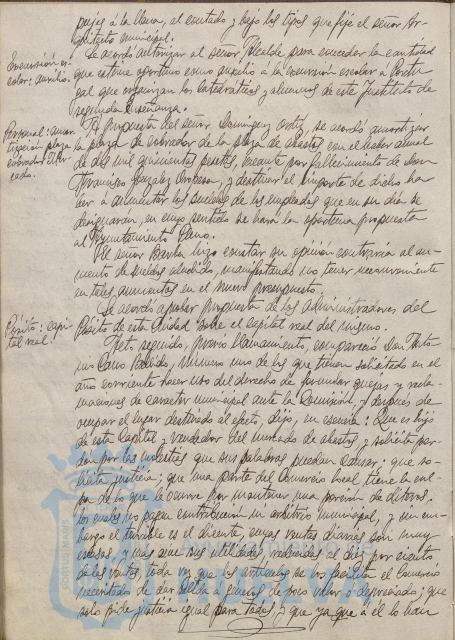 pujas á la llana, al contado y bajo los tipos que fije el señor Ar-
quitecto municipal.
Excursión es-
colar: auxilio.
Se acordó autorizar al señor Alcalde para conceder la cantidad
que estime oportuno como auxilio á la excursión escolar á Portu-
gal que organizan los catedráticos y alumnos de este Instituto de
segunda Enseñanza.
Personal: amor-
tización plaza
cobrador Mer-
cado.
A propuesta del señor Domínguez Ordóñez, se acordó amortizar
la plaza de cobrador de la plaza de abastos con el haber anual
de dos mil quinientas pesetas, vacante por fallecimiento de don
Francisco González Oropesa, y destinar el importe de dicho ha-
ber á aumentar los sueldos de los empleados que en su día se
designarán, en cuyo sentido se hará la oportuna propuesta
al Ayuntamiento Pleno.
El señor Barba hizo constar su opinión contraria al au-
mento de sueldos aludido, manifestando no tener inconveniente
en tales aumentos en el nuevo presupuesto.
Pósito: capi-
tal real.
Se acordó aprobar propuesta de los Administradores del
Pósito de esta ciudad sobre el capital real del mismo.
Act. seguido, previo llamamiento, compareció don
Cano número uno de los que tienen solicitado en el
año corriente hacer uso del derecho de formular quejas y recla-
maciones de carácter municipal ante la Comisión, y después de
ocupar el lugar destinado al efecto, dijo, en esencia: Que es hijo
de esta Capital y vendedor del mercado de abastos, y solicita per-
dón por las molestias que sus palabras puedan causar; que so-
licita justicia; que una parte del comercio local tiene la cul-
pa de lo que le ocurre por mantener una porción de
los cuales no pagan contribución ni arbitrio municipal, y sin em-
bargo el es el dicente, cuyas ventas diarias son muy
escasas, y más aún sus utilidades, reducidas al diez por ciento
de las ventas, toda vez que los artículos se los facilita el comercio
necesitado de dar salida á géneros de poco valor ó depreciados; que
solo pide justicia igual para todos, y que ya que a él lo han